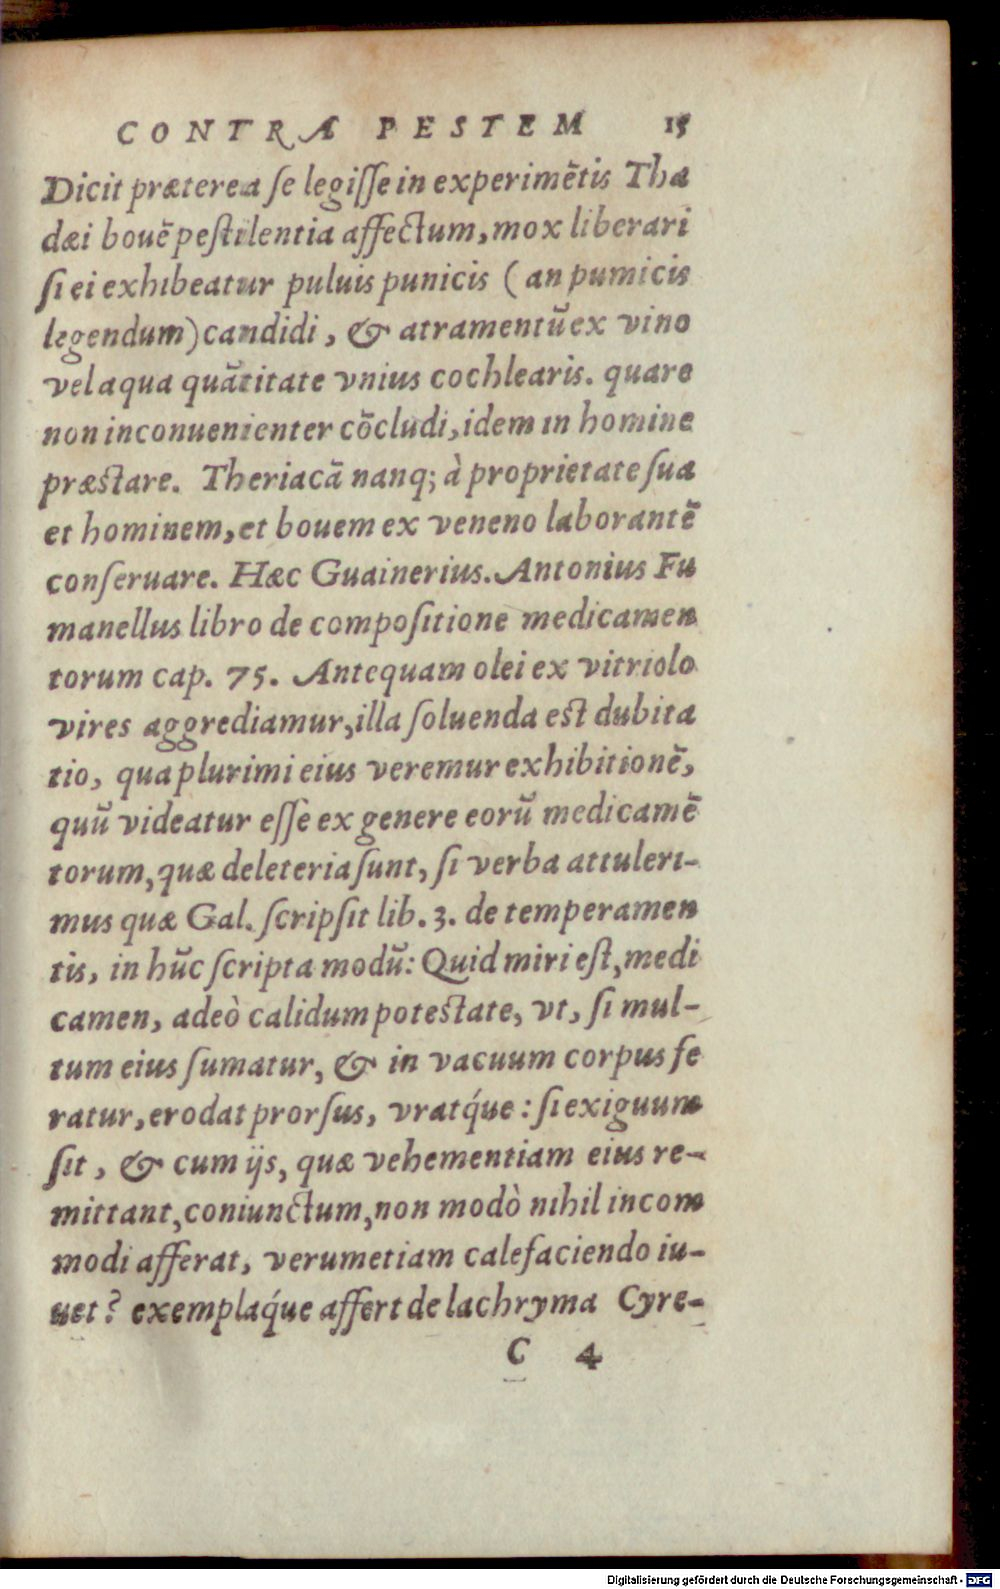 CONTRA PESTEM 15
Dicit præterea se legisse in experimẽtis Tha
dæi bouẽ pestilentia affectum, mox liberari
si ei exhibeatur puluis punicis (an pumicis
legendum) candidi, & atramentũ ex vino
vel aqua quãtitate vnius cochlearis. quare
non inconuenienter cõcludi, idem in homine
præstare. Theriacã nanq; à proprietate sua
et hominem, et bouem ex veneno laborantẽ
conseruare. Hæc Guainerius. Antonius Fu
manellus libro de compositione medicamen
torum cap. 75. Antequam olei ex vitriolo
vires aggrediamur, illa soluenda est dubita
tio, qua plurimi eius veremur exhibitionẽ,
quũ videatur esse ex genere eorũ medicamẽ
torum, quæ deleteria sunt, si verba attuleri-
mus quæ Gal. scripsit lib. 3. de temperamen
tis, in hũc scripta modũ: Quid miri est, medi
camen, adeò calidum potestate, vt, si mul-
tum eius sumatur, & in vacuum corpus fe
ratur, erodat prorsus, vratq́ue: si exiguum
sit, & cum ijs, quæ vehementiam eius re-
mittant, coniunctum, non modò nihil incom
modi afferat, verumetiam calefaciendo iu-
uet? exemplaq́ue affert de lachryma Cyre-
C 4
Digitalisierung gefördert durch die Deutsche Forschungsgemeinschaft - DFG